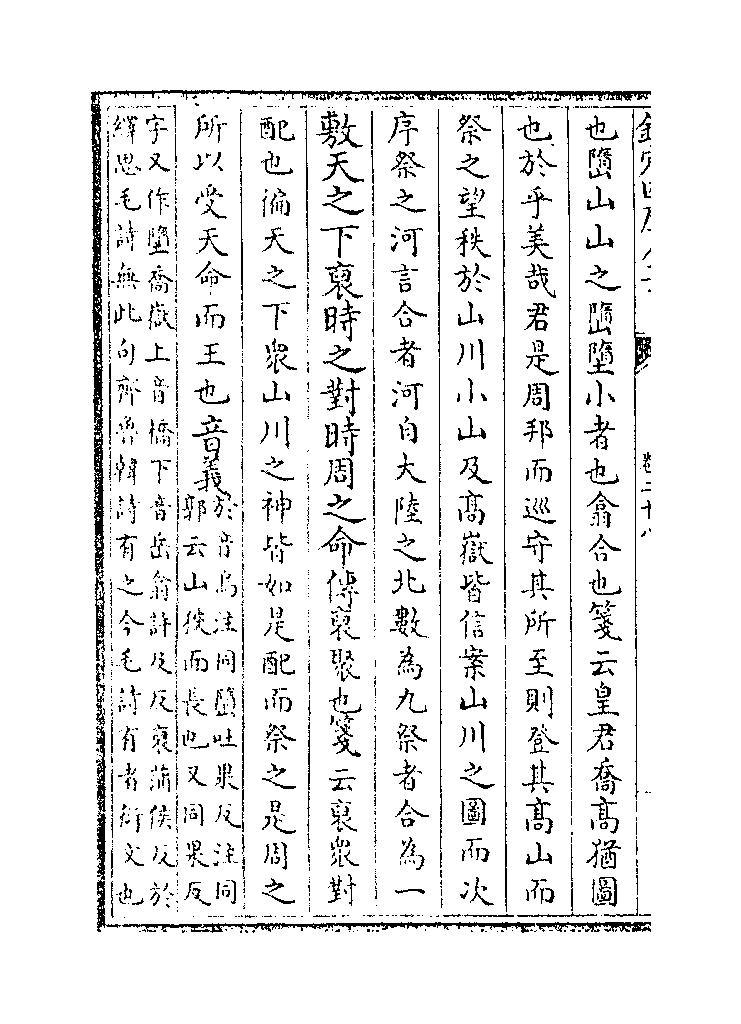 也墮山山之墮墯小者也翕合也箋云皇君喬髙猶圖
也於乎美哉君是周邦而巡守其所至則登其髙山而
祭之望秩於山川小山及髙嶽皆信案山川之圖而次
序祭之河言合者河自大陸之北敷為九祭者合為一
敷天之下裒時之對時周之命傳裒聚也箋云裒衆對
配也徧天之下衆山川之神皆如是配而祭之是周之
所以受天命而王也音義於音烏注同墮吐果反注同
郭云山狹而長也又同果反
字又作墮喬嶽上音橋下音岳翕許及反裒蒲侯反於
繹思毛詩無此句齊魯韓詩有之今毛詩有者衍文也
卷二十八